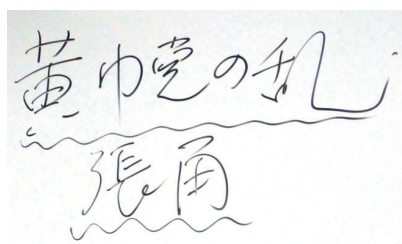 黄巾党の乱
張角